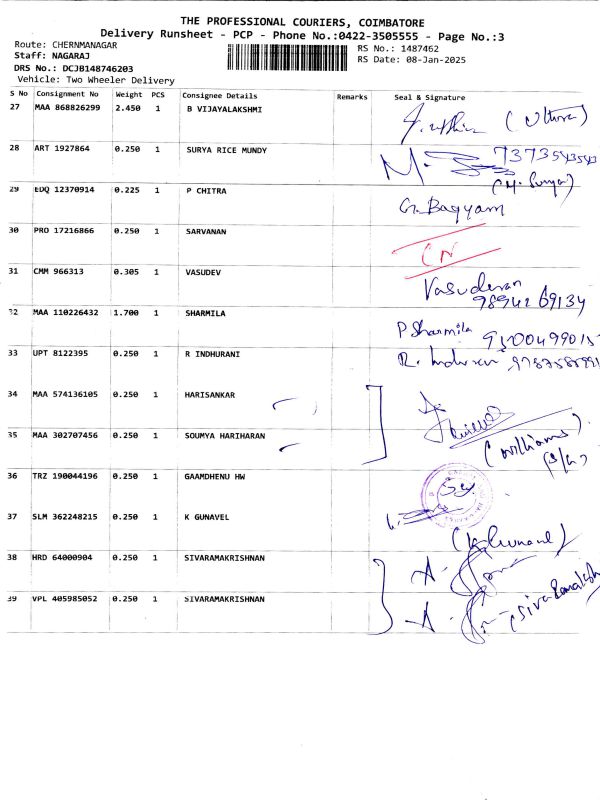 THE PROFESSIONAL COURIERS, COIMBATORE
Delivery Runsheet - PCP - Phone No.:0422-3505555 - Page No.:3
Route: CHERNMANAGAR
Staff: NAGARAJ
DRS No.: DCJB148746203
Vehicle: Two Wheeler Delivery
RS No.: 1487462
RS Date: 08-Jan-2025
S No Consignment No Weight PCS Consignee Details Remarks Seal & Signature
27 MAA 868826299 2.450 1 B VIJAYALAKSHMI
28 ART 1927864 0.250 1 SURYA RICE MUNDY 7373543543
(M. Surya)
29 EDQ 12370914 0.225 1 P CHITRA G. Bagyam
30 PRO 17216866 0.250 1 SARVANAN CN
31 CMM 966313 0.305 1 VASUDEV Vasudevan
9894269134
32 MAA 110226432 1.700 1 SHARMILA P Sharmila
33 UPT 8122395 0.250 1 R INDHURANI
34 MAA 574136105 0.250 1 HARISANKAR
35 MAA 302707456 0.250 1 SOUMYA HARIHARAN (williams)
36 TRZ 190044196 0.250 1 GAAMDHENU HW
37 SLM 362248215 0.250 1 K GUNAVEL
38 HRD 64000904 0.250 1 SIVARAMAKRISHNAN
39 VPL 405985052 0.250 1 SIVARAMAKRISHNAN